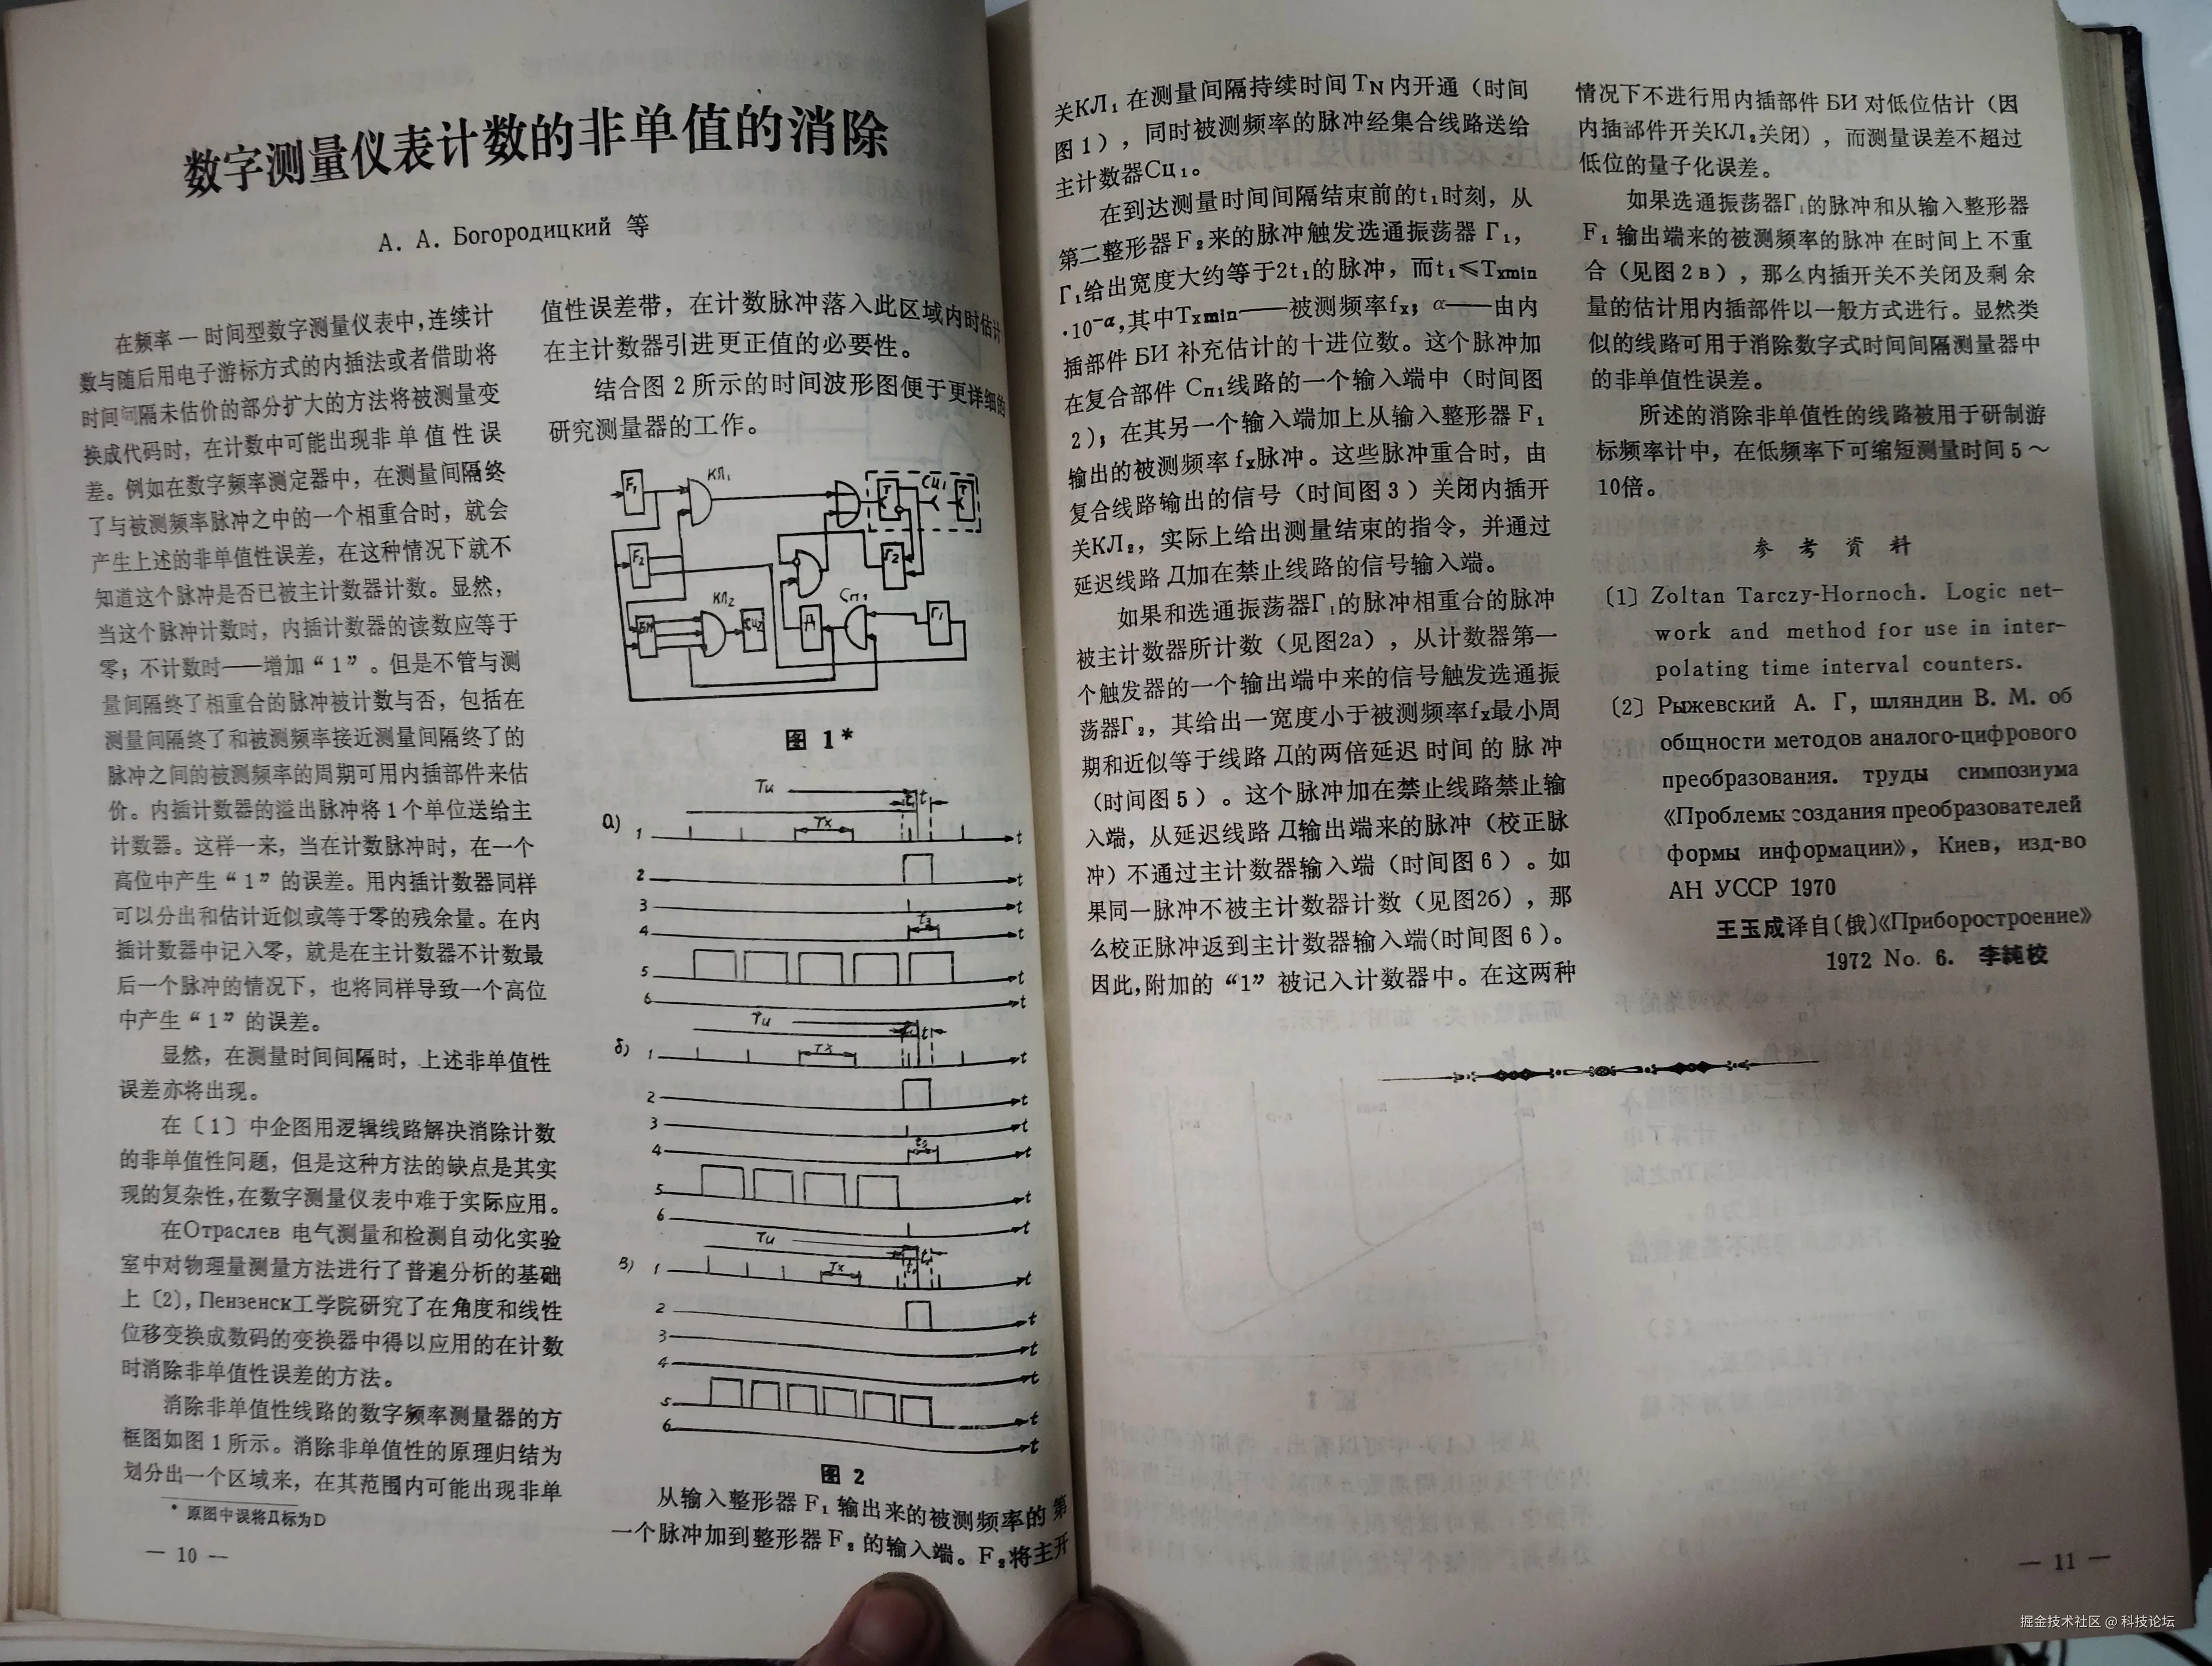 数字测量仪表计数的非单值的消除
А. А. Богородицкий 等
在频率—时间型数字测量仪表中,连续计
数与随后用电子游标方式的内插法或者借助将
时间间隔未估价的部分扩大的方法将被测量变
换成代码时，在计数中可能出现非单值性误
差。例如在数字频率测定器中，在测量间隔终
了与被测频率脉冲之中的一个相重合时，就会
产生上述的非单值性误差，在这种情况下就不
知道这个脉冲是否已被主计数器计数。显然，
当这个脉冲计数时，内插计数器的读数应等于
零；不计数时——增加“1”。但是不管与测
量间隔终了相重合的脉冲被计数与否，包括在
测量间隔终了和被测频率接近测量间隔终了的
脉冲之间的被测频率的周期可用内插部件来估
价。内插计数器的溢出脉冲将1个单位送给主
计数器。这样一来，当在计数脉冲时，在一个
高位中产生“1”的误差。用内插计数器同样
可以分出和估计近似或等于零的残余量。在内
插计数器中记入零，就是在主计数器不计数最
后一个脉冲的情况下，也将同样导致一个高位
中产生“1”的误差。
显然，在测量时间间隔时，上述非单值性
误差亦将出现。
在〔1〕中企图用逻辑线路解决消除计数
的非单值性问题，但是这种方法的缺点是其实
现的复杂性,在数字测量仪表中难于实际应用。
在Отраслев 电气测量和检测自动化实验
室中对物理量测量方法进行了普遍分析的基础
上〔2〕,Пензенск工学院研究了在角度和线性
位移变换成数码的变换器中得以应用的在计数
时消除非单值性误差的方法。
消除非单值性线路的数字频率测量器的方
框图如图1所示。消除非单值性的原理归结为
划分出一个区域来，在其范围内可能出现非单
* 原图中误将Д标为D
— 10 —
值性误差带，在计数脉冲落入此区域内时估计
在主计数器引进更正值的必要性。
结合图2所示的时间波形图便于更详细的
研究测量器的工作。
F₁ КЛ₁ T СЦ₁ T
F₂ F₂
БИ КЛ₂ СЦ₂ Д Сп₁ Г₁
图 1*
Tи
t₁ t₁
а) 1 Tx t
2 t
3 t
4 t₃ t
5 t
6 t
Tи
б) 1 Tx t
2 t
3 t
4 t₃ t
5 t
6 t
Tи
в) 1 Tx t
2 t
3 t
4 t
5 t
6 t
图 2
从输入整形器F₁输出来的被测频率的第
一个脉冲加到整形器F₂的输入端。F₂将主开
关КЛ₁在测量间隔持续时间TN内开通（时间
图1），同时被测频率的脉冲经集合线路送给
主计数器Сц₁。
在到达测量时间间隔结束前的t₁时刻，从
第二整形器F₂来的脉冲触发选通振荡器Γ₁，
Γ₁给出宽度大约等于2t₁的脉冲，而t₁≤Txmin
·10⁻ᵅ,其中Txmin——被测频率fx；α——由内
插部件БИ补充估计的十进位数。这个脉冲加
在复合部件Сп₁线路的一个输入端中（时间图
2）；在其另一个输入端加上从输入整形器F₁
输出的被测频率fx脉冲。这些脉冲重合时，由
复合线路输出的信号（时间图3）关闭内插开
关КЛ₂，实际上给出测量结束的指令，并通过
延迟线路Д加在禁止线路的信号输入端。
如果和选通振荡器Γ₁的脉冲相重合的脉冲
被主计数器所计数（见图2a），从计数器第一
个触发器的一个输出端中来的信号触发选通振
荡器Γ₂，其给出一宽度小于被测频率fx最小周
期和近似等于线路Д的两倍延迟时间的脉冲
（时间图5）。这个脉冲加在禁止线路禁止输
入端，从延迟线路Д输出端来的脉冲（校正脉
冲）不通过主计数器输入端（时间图6）。如
果同一脉冲不被主计数器计数（见图2б），那
么校正脉冲返到主计数器输入端(时间图6)。
因此,附加的“1”被记入计数器中。在这两种
情况下不进行用内插部件БИ对低位估计（因
内插部件开关КЛ₂关闭），而测量误差不超过
低位的量子化误差。
如果选通振荡器Γ₁的脉冲和从输入整形器
F₁输出端来的被测频率的脉冲在时间上不重
合（见图2в），那么内插开关不关闭及剩余
量的估计用内插部件以一般方式进行。显然类
似的线路可用于消除数字式时间间隔测量器中
的非单值性误差。
所述的消除非单值性的线路被用于研制游
标频率计中，在低频率下可缩短测量时间5～
10倍。
参考资料
〔1〕Zoltan Tarczy-Hornoch. Logic net-
work and method for use in inter-
polating time interval counters.
〔2〕Рыжевский А. Г, шляндин В. М. об
общности методов аналого-цифрового
преобразования. труды симпозиума
《Проблемы создания преобразователей
формы информации》, Киев, изд-во
АН УССР 1970
王玉成译自〔俄〕《Приборостроение》
1972 No. 6. 李純校
— 11 —
掘金技术社区 @ 科技论坛